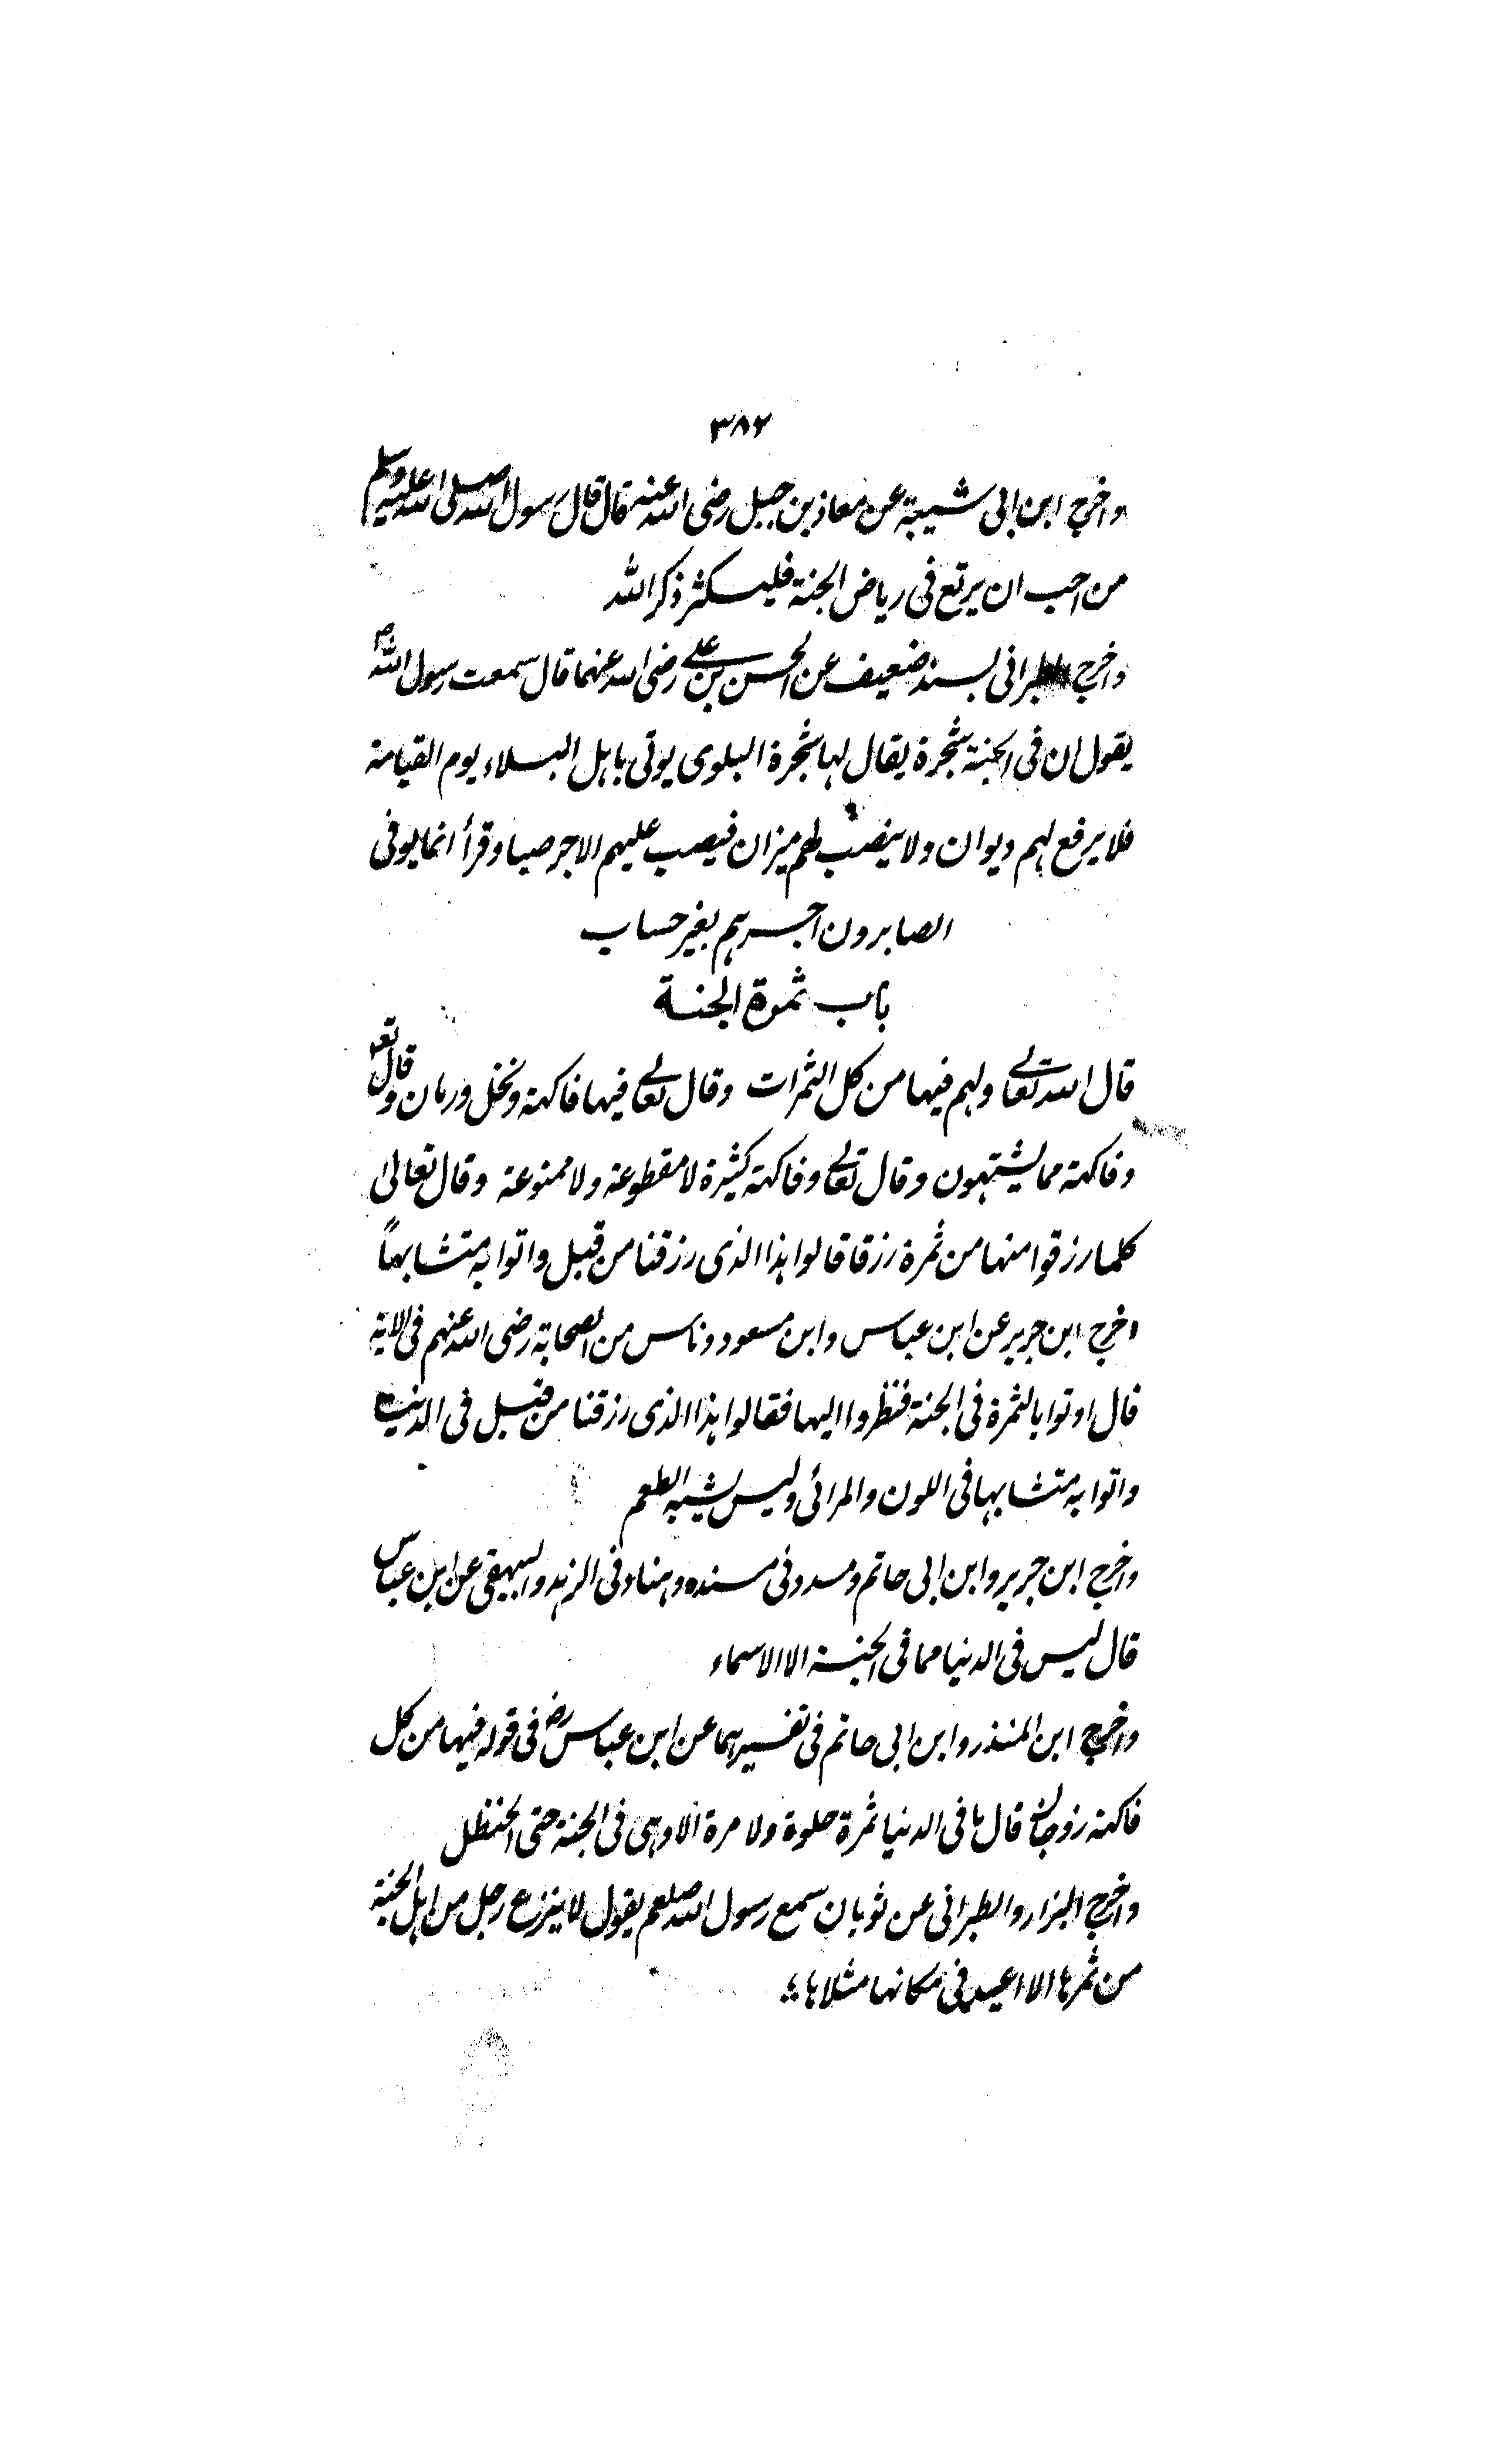 ٣٨٢
واخرج ابن ابی شیبة عن معاذ بن جبل رضی الله عنه قال قال رسول الله صلی الله علیہ وسلم
من احب ان یرتع فی ریاض الجنة فلیکثر ذکر الله
واخرج الطبرانی بسند ضعیف عن الحسن بن علی رضی الله عنهما قال سمعت رسول الله ص
یقول ان فی الجنة شجرة یقال لها شجرة البلوی یوتی باهل البلاء یوم القیامة
فلا یرفع لهم دیوان ولا ینصب لهم میزان فیصب علیهم الاجر صبا وقرأ انما یوفی
الصابرون اجرهم بغیر حساب
باب ثمرة الجنة
قال الله تعالی ولهم فیها من کل الثمرات وقال تعالی فیها فاکهة ونخل ورمان وقال تعه
وفاکهة مما یشتهون وقال تعالی وفاکهة کثیرة لا مقطوعة ولا ممنوعة وقال تعالیٰ
کلما رزقوا منها من ثمرة رزقا قالوا هذا الذی رزقنا من قبل واتوا به متشابهاً
اخرج ابن جریر عن ابن عباس وابن مسعود وناس من الصحابة رضی الله عنهم فی الایة
قال اوتوا بالثمرة فی الجنة فنظروا الیها فقالوا هذا الذی رزقنا من قبل فی الدنیا
واتوا به متشابها فی اللون والمرائی ولیس یشبه الطعم
واخرج ابن جریر وابن ابی حاتم ومسدد فی مسنده وهناد فی الزهد والبیهقی عن ابن عباس
قال لیس فی الدنیا مما فی الجنة الا الاسماء
واخرج ابن المنذر وابن ابی حاتم فی تفسیرهما عن ابن عباس رض فی قوله فیها من کل
فاکهة زوجان قال ما فی الدنیا ثمرة حلوة ولا مرة الا وهی فی الجنة حتی الحنظل
واخرج البزار والطبرانی عن ثوبان سمع رسول الله صلعم یقول لا ینزع رجل من اهل الجنة
من ثمرها الا اعید فی مکانها مثلاها ؛